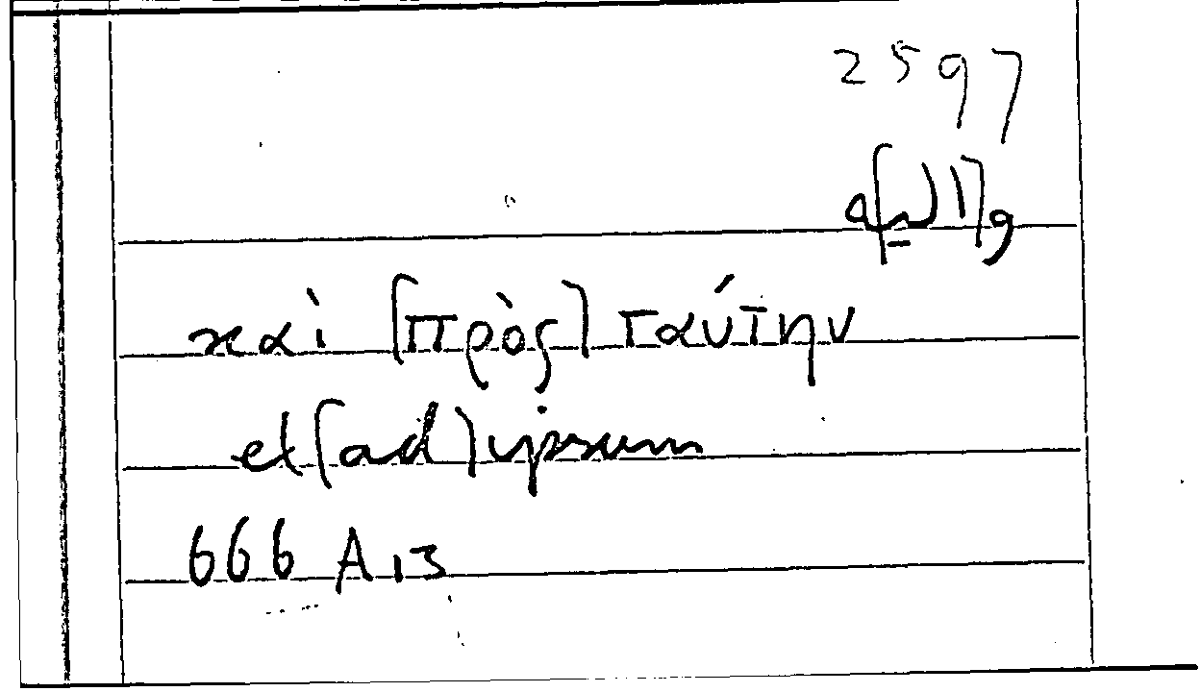 2597
καὶ [πρὸς] ταύτην
et (ad) ipsum
666 A 13